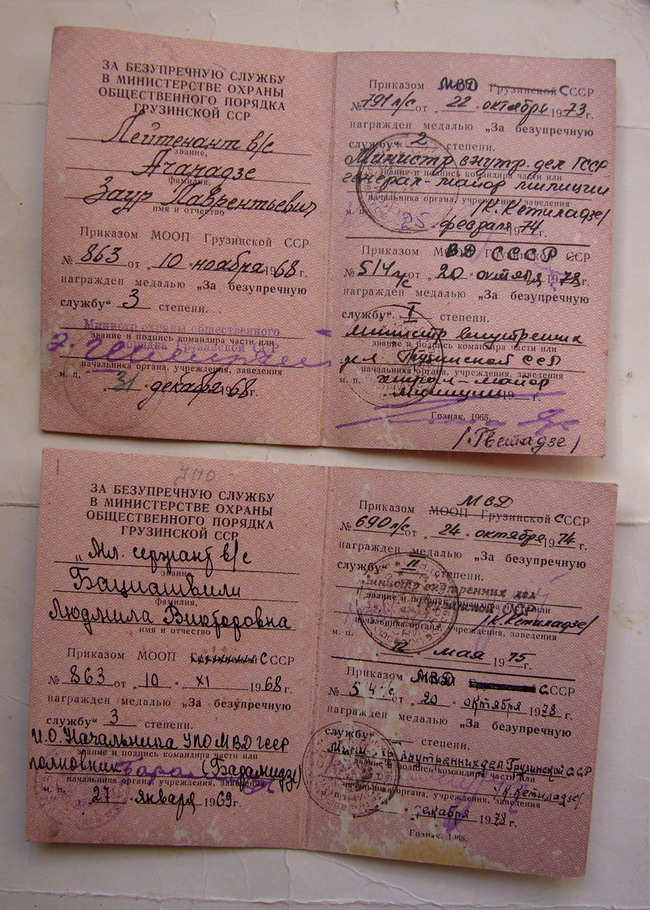 ЗА БЕЗУПРЕЧНУЮ СЛУЖБУ
В МИНИСТЕРСТВЕ ОХРАНЫ
ОБЩЕСТВЕННОГО ПОРЯДКА
ГРУЗИНСКОЙ ССР
Лейтенант в/с
звание,
Ачарадзе
фамилия,
Заур Лаврентьевич
имя и отчество
Приказом МООП Грузинской ССР
№ 863 от „10" ноября 1968 г.
награжден медалью „За безупречную
службу" 3 степени.
Министр охраны общественного
звание и подпись командира части или
начальника органа, учреждения, заведения
м. п. 31 декабря 1968 г.
Приказом МВД Грузинской СССР
№ 791 л/с от „22" октября 1973 г.
награжден медалью „За безупречную
службу" 2 степени.
Министр внутр. дел ГССР
звание и подпись командира части или
генерал-майор милиции
начальника органа, учреждения, заведения
/К. Кетиладзе/
м. п. 25 февраля 1974 г.
Приказом МООП Грузинской ССР
ВД СССР
№ 514 л/с от „20" октября 1978 г.
награжден медалью „За безупречную
службу" I степени.
Министр внутренних
звание и подпись командира части или
дел Грузинской ССР
начальника органа, учреждения, заведения
м. п. генерал-майор
милиции
Гознак. 1965.
УПО
ЗА БЕЗУПРЕЧНУЮ СЛУЖБУ
В МИНИСТЕРСТВЕ ОХРАНЫ
ОБЩЕСТВЕННОГО ПОРЯДКА
ГРУЗИНСКОЙ ССР
Мл. сержант в/с
звание,
Бациашвили
фамилия,
Людмила Викторовна
имя и отчество
Приказом МООП Грузинской СССР
№ 863 от „10" XI 1968 г.
награжден медалью „За безупречную
службу" 3 степени.
И.О. Начальника УПО МВД ГССР
звание и подпись командира части или
полковник (Барамидзе)
начальника органа, учреждения, заведения
м. п. „27" января 1969 г.
МВД
Приказом МООП Грузинской СССР
№ 690 л/с от „24" октября 1974 г.
награжден медалью „За безупречную
службу" II степени.
министр внутренних дел
звание и подпись командира части или
/К. Кетиладзе/
начальника органа, учреждения, заведения
м. п. 12 мая 1975 г.
Приказом МВД СССР
№ от „20" октября 1978 г.
награжден медалью „За безупречную
службу" степени.
Министр внутренних дел Грузинской ССР
звание и подпись командира части или
/К. Кетиладзе/
начальника органа, учреждения, заведения
м. п. декабря 1978 г.
Гознак. 1965.